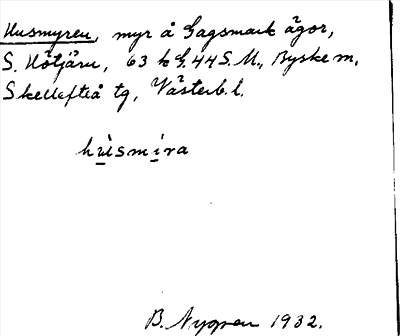 Husmyren, myr å Gagsmark ägor,
S. Hötjärn, 63 k G. 44 S. M., Byske sn,
Skellefteå tg, Västerb. l.
hu̲smi̲ra
B. Nygren 1932.